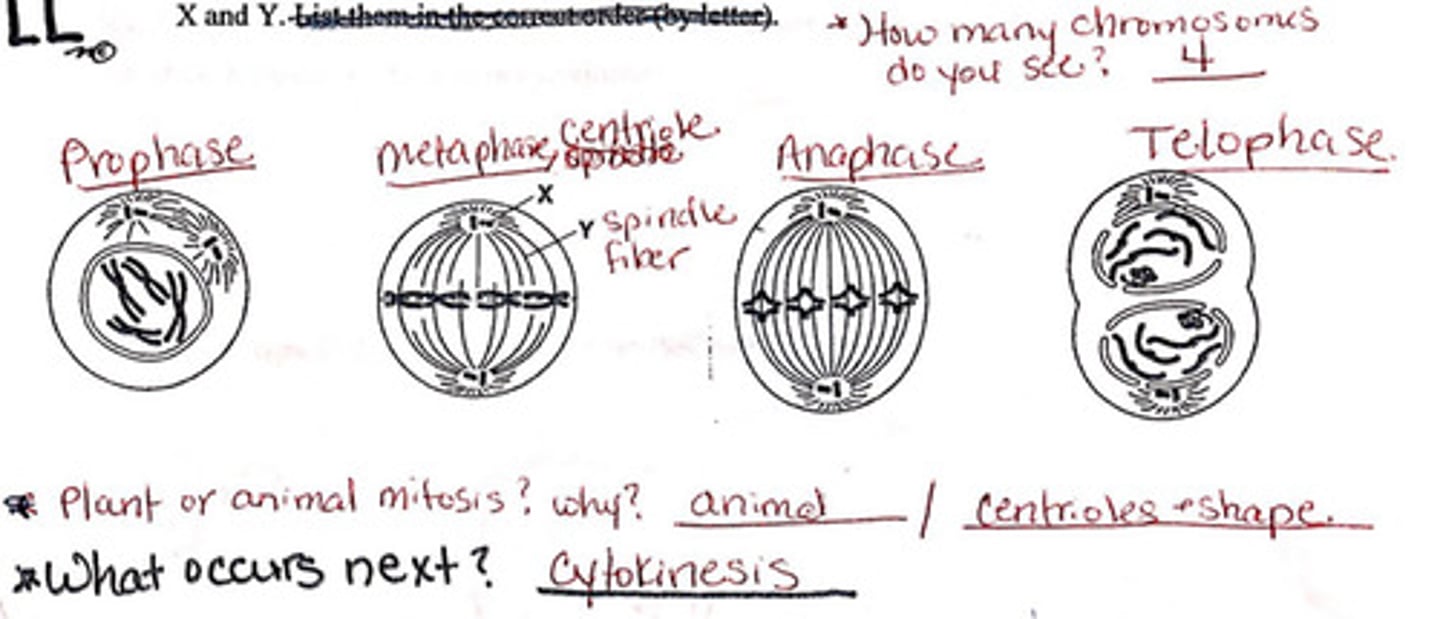 LL
X and Y. List them in the correct order (by letter).
* How many chromosomes
do you see? 4
Prophase
Metaphase, centriole
spindle
Anaphase
Telophase.
X
Y spindle
fiber
* Plant or animal mitosis? why? animal / centrioles + shape.
* What occurs next? cytokinesis